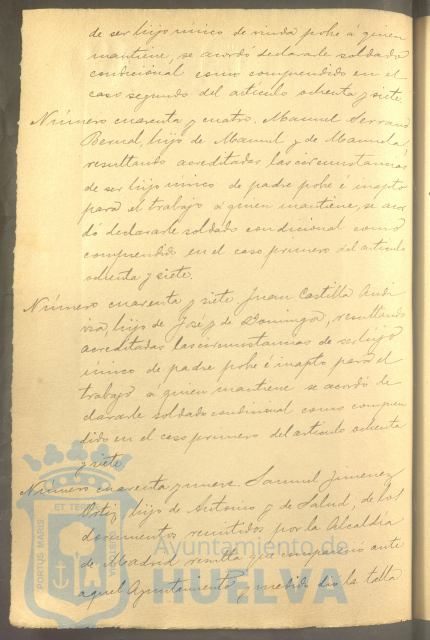 de ser hijo único de viuda pobre á quien
mantiene, se acordó declararle soldado
condicional como comprendido en el
caso segundo del artículo ochenta y siete.
Número cuarenta y cuatro. Manuel Serrano
Bernal, hijo de Manuel y de Manuela,
resultando acreditadas las circunstancias
de ser hijo único de padre pobre é inapto
para el trabajo á quien mantiene, se acor
dó declararle soldado condicional como
comprendido en el caso primero del artículo
ochenta y siete.
Número cuarenta y siete Juan Castilla
hijo de José y de Dominga, resultando
acreditadas las circunstancias de ser hijo
único de padre pobre é inapto para el
trabajo á quien mantiene se acordó de
clararle soldado condicional como compren
dido en el caso primero del artículo ochenta
y siete.
Número cuarenta y nueve. Samuel Jimenez
Ortiz, hijo de Antonio y de Salud, de los
documentos remitidos por la Alcaldía
de Madrid resulta que compareció ante
aquel Ayuntamiento y medido dio la talla
PORTUS MARIS ET TERRAE
Ayuntamiento de
HUELVA